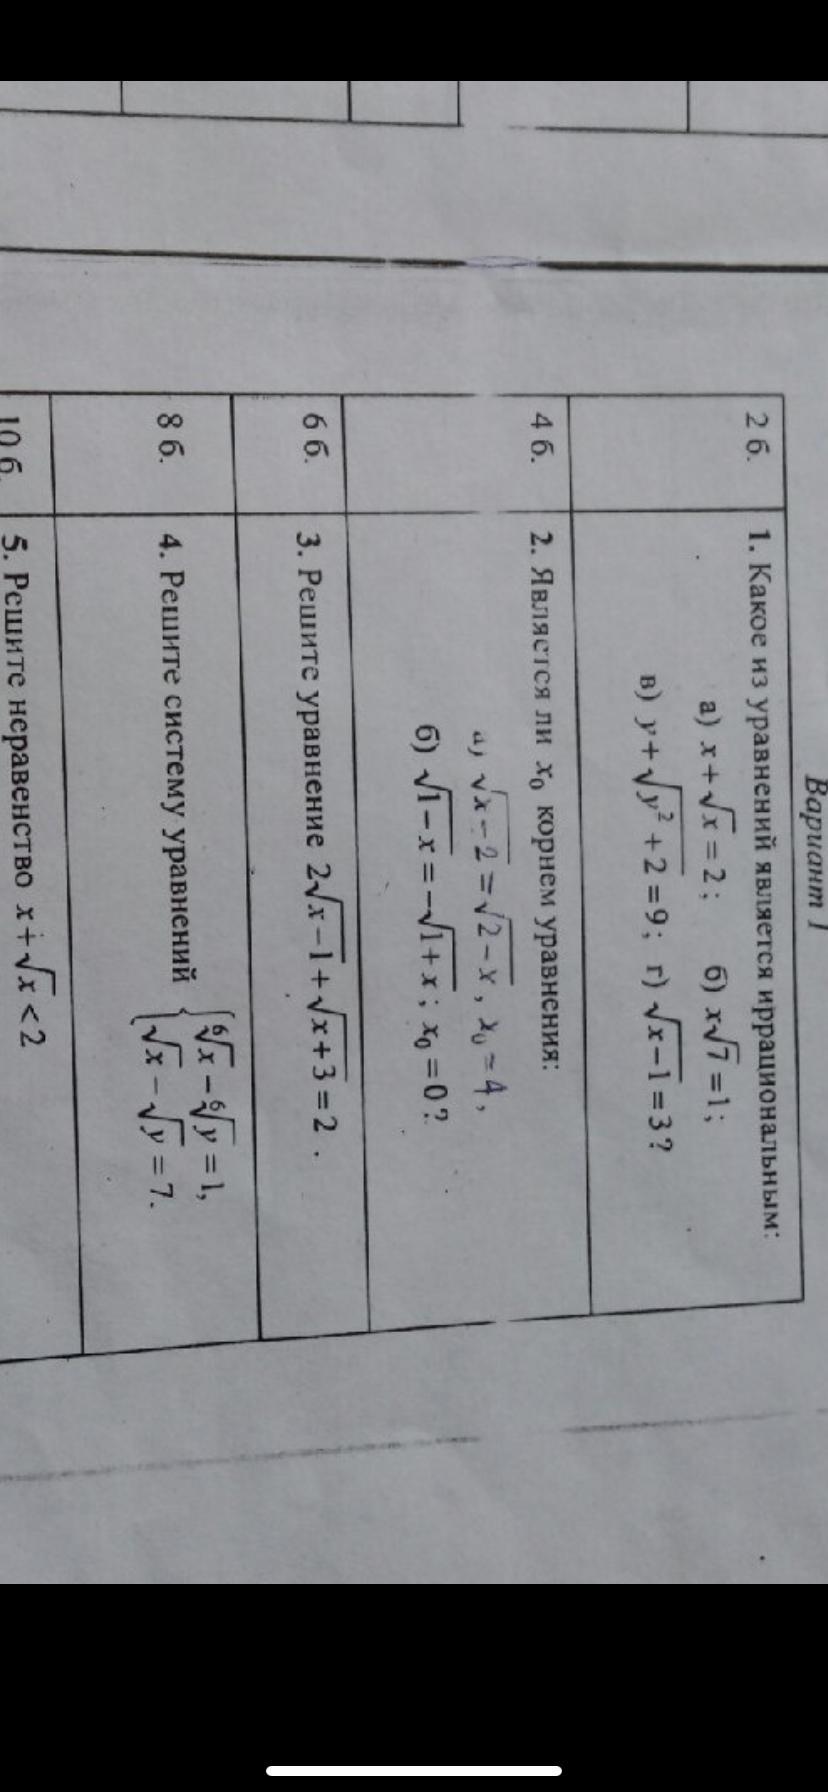 Вариант 1
2 б. 1. Какое из уравнений является иррациональным:
а) x+√x=2; б) x√7=1;
в) y+√(y²+2)=9; г) √(x−1)=3?
4 б. 2. Является ли x₀ корнем уравнения:
а) √(x−2)=√(2−x), x₀=4,
б) √(1−x)=−√(1+x); x₀=0?
6 б. 3. Решите уравнение 2√(x−1)+√(x+3)=2.
8 б. 4. Решите систему уравнений { ⁶√x−⁶√y=1,
√x−√y=7.
10 б. 5. Решите неравенство x+√x<2